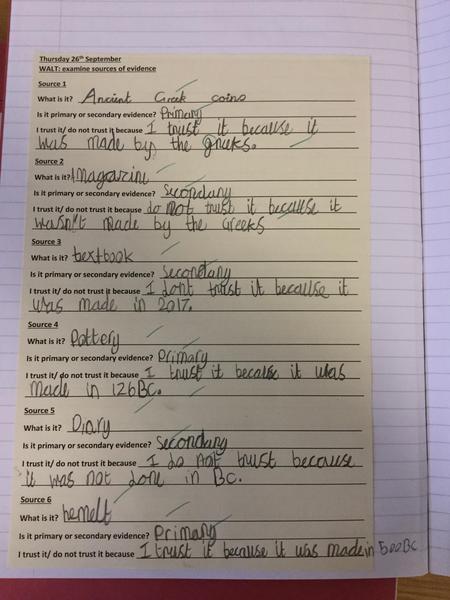 Thursday 26th September
WALT: examine sources of evidence
Source 1
What is it? Ancient Greek coins
Is it primary or secondary evidence? Primary
I trust it/ do not trust it because I trust it because it
was made by the greeks.
Source 2
What is it? Magazine
Is it primary or secondary evidence? Secondary
I trust it/ do not trust it because do not trust it because it
wasn't made by the Greeks
Source 3
What is it? textbook
Is it primary or secondary evidence? Secondary
I trust it/ do not trust it because I dont trust it because it
was made in 2017.
Source 4
What is it? Pottery
Is it primary or secondary evidence? Primary
I trust it/ do not trust it because I trust it because it was
made in 126BC.
Source 5
What is it? Diary
Is it primary or secondary evidence? Secondary
I trust it/ do not trust it because I do not trust because
it was not done in BC.
Source 6
What is it? hemelt
Is it primary or secondary evidence? Primary
I trust it/ do not trust it because I trust it because it was made in 500BC